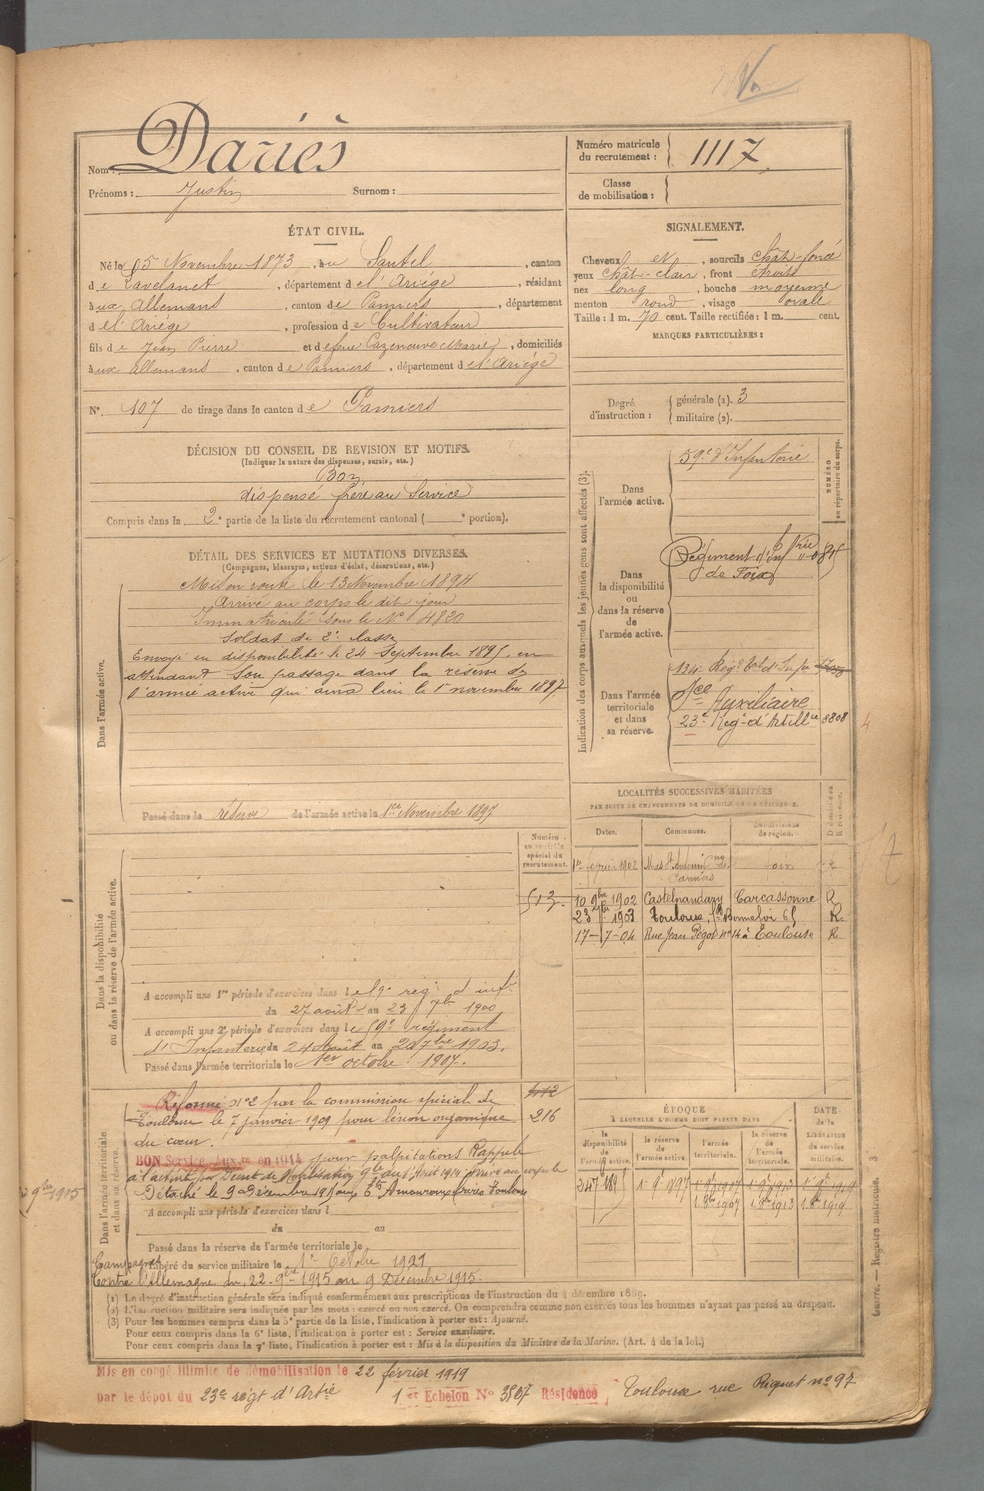 Nom : Dariès
Prénoms : Justin Surnom :
Numéro matricule du recrutement : 1117
Classe de mobilisation :
ÉTAT CIVIL.
Né le 15 Novembre 1873, au Sautel, canton
de Lavelanet, département de l'Ariège, résidant
aux Allemans, canton de Pamiers, département
de l'Ariège, profession de Cultivateur
fils de Jean Pierre et de feue Cazeneuve Marie, domiciliés
aux Allemans, canton de Pamiers, département de l'Ariège
N° 107 de tirage dans le canton de Pamiers
SIGNALEMENT.
Cheveux et, sourcils chât-foncé
yeux chât-clair, front étroit
nez long, bouche moyenne
menton rond, visage ovale
Taille : 1 m. 70 cent. Taille rectifiée : 1 m. cent.
MARQUES PARTICULIÈRES :
Degré d'instruction : générale (1). 3
militaire (2).
DÉCISION DU CONSEIL DE REVISION ET MOTIFS.
(Indiquer la nature des dispenses, sursis, etc.)
Bon
dispensé frère au Service
Compris dans la 2e partie de la liste du recrutement cantonal ( e portion).
DÉTAIL DES SERVICES ET MUTATIONS DIVERSES.
(Campagnes, blessures, actions d'éclat, décorations, etc.)
Dans l'armée active.
Mis en route le 13 Novembre 1894
Arrivé au corps le dit jour
Immatriculé sous le N° 4820
Soldat de 2e classe
Envoyé en disponibilité le 24 Septembre 1895, en
attendant son passage dans la réserve de
l'armée active qui aura lieu le 1er novembre 1897.
Passé dans la réserve de l'armée active le 1er Novembre 1897
Indication des corps auxquels les jeunes gens sont affectés (3).
NUMÉRO au répertoire du corps.
Dans l'armée active.
59e d'Infanterie
Dans la disponibilité ou dans la réserve de l'armée active.
Régiment d'Infrie
de Foix
Dans l'armée territoriale et dans sa réserve.
134e Régt tal d'Infie
Sce Auxiliaire
23e Régt d'Artillie 3808
LOCALITÉS SUCCESSIVES HABITÉES
PAR SUITE DE CHANGEMENTS DE DOMICILE OU DE RÉSIDENCE.
Dates. Communes. Subdivisions de région.
1er février 1902 Mas St Antonin
10 9bre 1902 Castelnaudary Carcassonne R
23 1903 Toulouse, Bonnefoi 65 R.
17-7-04 Rue Jean Pégot n° 14 à Toulouse R.
Dans la disponibilité ou dans la réserve de l'armée active.
Numéro au contrôle spécial du recrutement.
513.
A accompli une 1re période d'exercices dans le 59e régt d'infie
du 27 août au 23 7bre 1900
A accompli une 2e période d'exercices dans le 59e régiment
d'Infanterie du 24 Août au 20 7bre 1903.
Passé dans l'armée territoriale le 1er octobre 1907.
Dans l'armée territoriale et dans sa réserve.
Réformé n° 2 par la commission spéciale de
Toulouse le 7 janvier 1909 pour lésion organique 216
du cœur.
BON Service Auxre en 1914 pour palpitations Rappelé
à l'activité par Décret de Mobilisation Gle du 1er Août 1914 Arrivé au corps le
Détaché le 9 Décembre 1915 aux Amouroux frères Toulouse
A accompli une période d'exercices dans l
du au
Passé dans la réserve de l'armée territoriale le
Libéré du service militaire le 1er Octobre 1921
Campagnes
Contre l'Allemagne du 22 9bre 1915 au 9 Décembre 1915.
ÉPOQUE
À LAQUELLE L'HOMME DOIT PASSER DANS
la disponibilité de l'armée active. la réserve de l'armée active. l'armée territoriale. la réserve de l'armée territoriale.
DATE de la LIBÉRATION du service militaire.
24 7bre 1895 1er 9bre 1897
(1) Le degré d'instruction générale sera indiqué conformément aux prescriptions de l'instruction du 4 décembre 1889.
(2) L'instruction militaire sera indiquée par les mots : exercé ou non exercé. On comprendra comme non exercés tous les hommes n'ayant pas passé au drapeau.
(3) Pour les hommes compris dans la 5e partie de la liste, l'indication à porter est : Ajourné.
Pour ceux compris dans la 6e liste, l'indication à porter est : Service auxiliaire.
Pour ceux compris dans la 7e liste, l'indication à porter est : Mis à la disposition du Ministre de la Marine. (Art. 4 de la loi.)
Guerre. — Registre matricule. 3
Mis en congé illimité de démobilisation le 22 février 1919
par le dépôt du 23e régt d'Artie 1er Echelon N° 3807 Résidence Toulouse rue Riquet n° 97